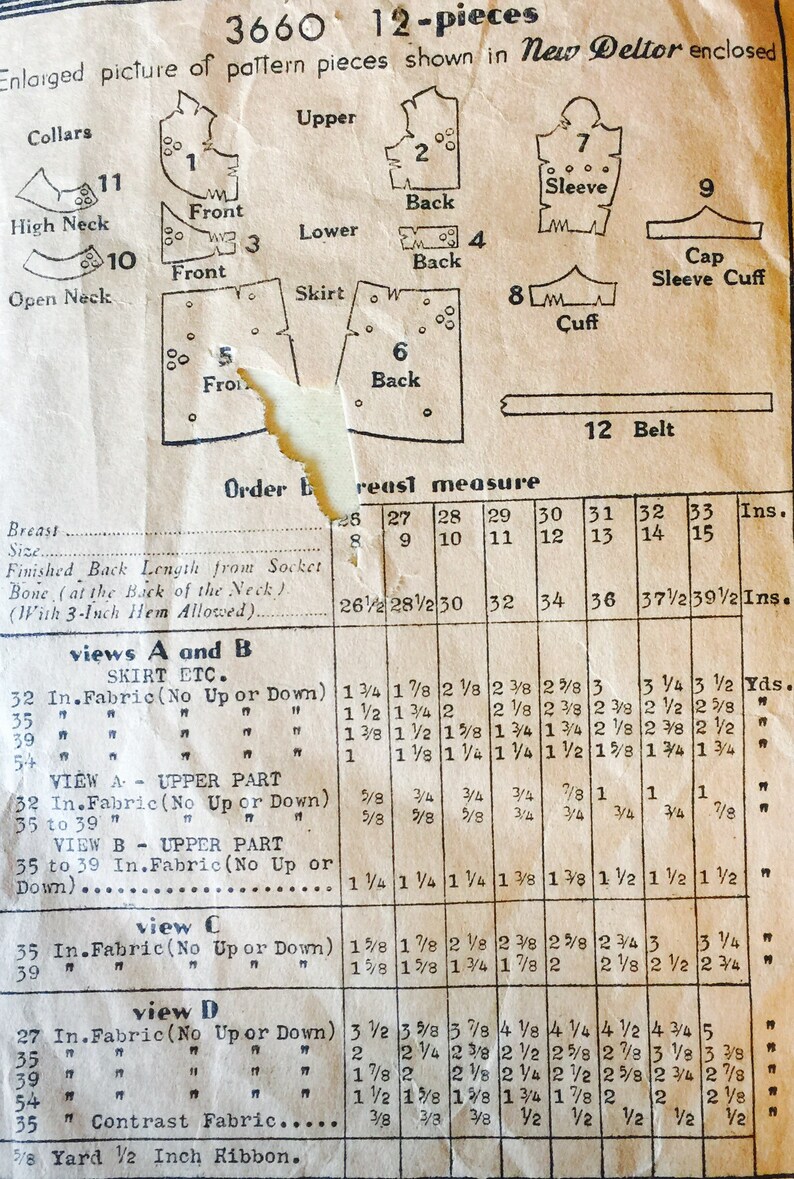 3660 12-pieces
Enlarged picture of pattern pieces shown in New Deltor enclosed
Collars
Upper
1
2
7
11
Front
Back
Sleeve
9
High Neck
Lower
3
4
Cap
Sleeve Cuff
10
Front
Back
Open Neck
Skirt
8
Cuff
5
6
Back
12 Belt
Order reast measure
Breast 26 27 28 29 30 31 32 33 Ins.
Size 8 9 10 11 12 13 14 15
Finished Back Length from Socket
Bone (at the Back of the Neck)
(With 3-Inch Hem Allowed) 26½ 28½ 30 32 34 36 37½ 39½ Ins.
views A and B
SKIRT ETC.
32 In. Fabric (No Up or Down) 1 3/4 1 7/8 2 1/8 2 3/8 2 5/8 3 3 1/4 3 1/2 Yds.
35 " " " " " 1 1/2 1 3/4 2 2 1/8 2 3/8 2 3/8 2 1/2 2 5/8 "
39 " " " " " 1 3/8 1 1/2 1 5/8 1 3/4 1 3/4 2 1/8 2 3/8 2 1/2 "
54 " " " " " 1 1 1/8 1 1/4 1 1/4 1 1/2 1 5/8 1 3/4 1 3/4 "
VIEW A - UPPER PART
32 In. Fabric (No Up or Down) 5/8 3/4 3/4 3/4 7/8 1 1 1 "
35 to 39 " " " " " 5/8 5/8 5/8 3/4 3/4 3/4 3/4 7/8 "
VIEW B - UPPER PART
35 to 39 In. Fabric (No Up or
Down)..................... 1 1/4 1 1/4 1 1/4 1 3/8 1 3/8 1 1/2 1 1/2 1 1/2 "
view C
35 In. Fabric (No Up or Down) 1 5/8 1 7/8 2 1/8 2 3/8 2 5/8 2 3/4 3 3 1/4 "
39 " " " " " 1 5/8 1 5/8 1 3/4 1 7/8 2 2 1/8 2 1/2 2 3/4 "
view D
27 In. Fabric (No Up or Down) 3 1/2 3 5/8 3 7/8 4 1/8 4 1/4 4 1/2 4 3/4 5 "
35 " " " " " 2 2 1/4 2 3/8 2 1/2 2 5/8 2 7/8 3 1/8 3 3/8 "
39 " " " " " 1 7/8 2 2 1/8 2 1/4 2 1/2 2 5/8 2 3/4 2 7/8 "
54 " " " " " 1 1/2 1 5/8 1 5/8 1 3/4 1 7/8 2 2 2 1/8 "
35 " Contrast Fabric..... 3/8 3/8 3/8 1/2 1/2 1/2 1/2 1/2 "
5/8 Yard 1/2 Inch Ribbon.